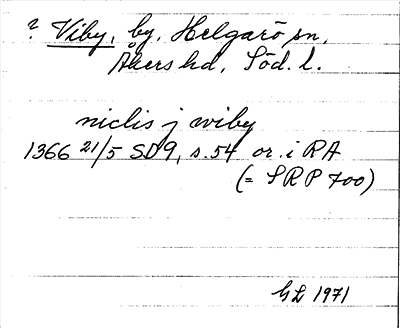 ? Viby, by, Helgarö sn,
Åkers hd, Söd. l.
niclis j wiby
1366 21/5 SD9, s. 54 or. i RA
(= SRP 700)
GL 1971